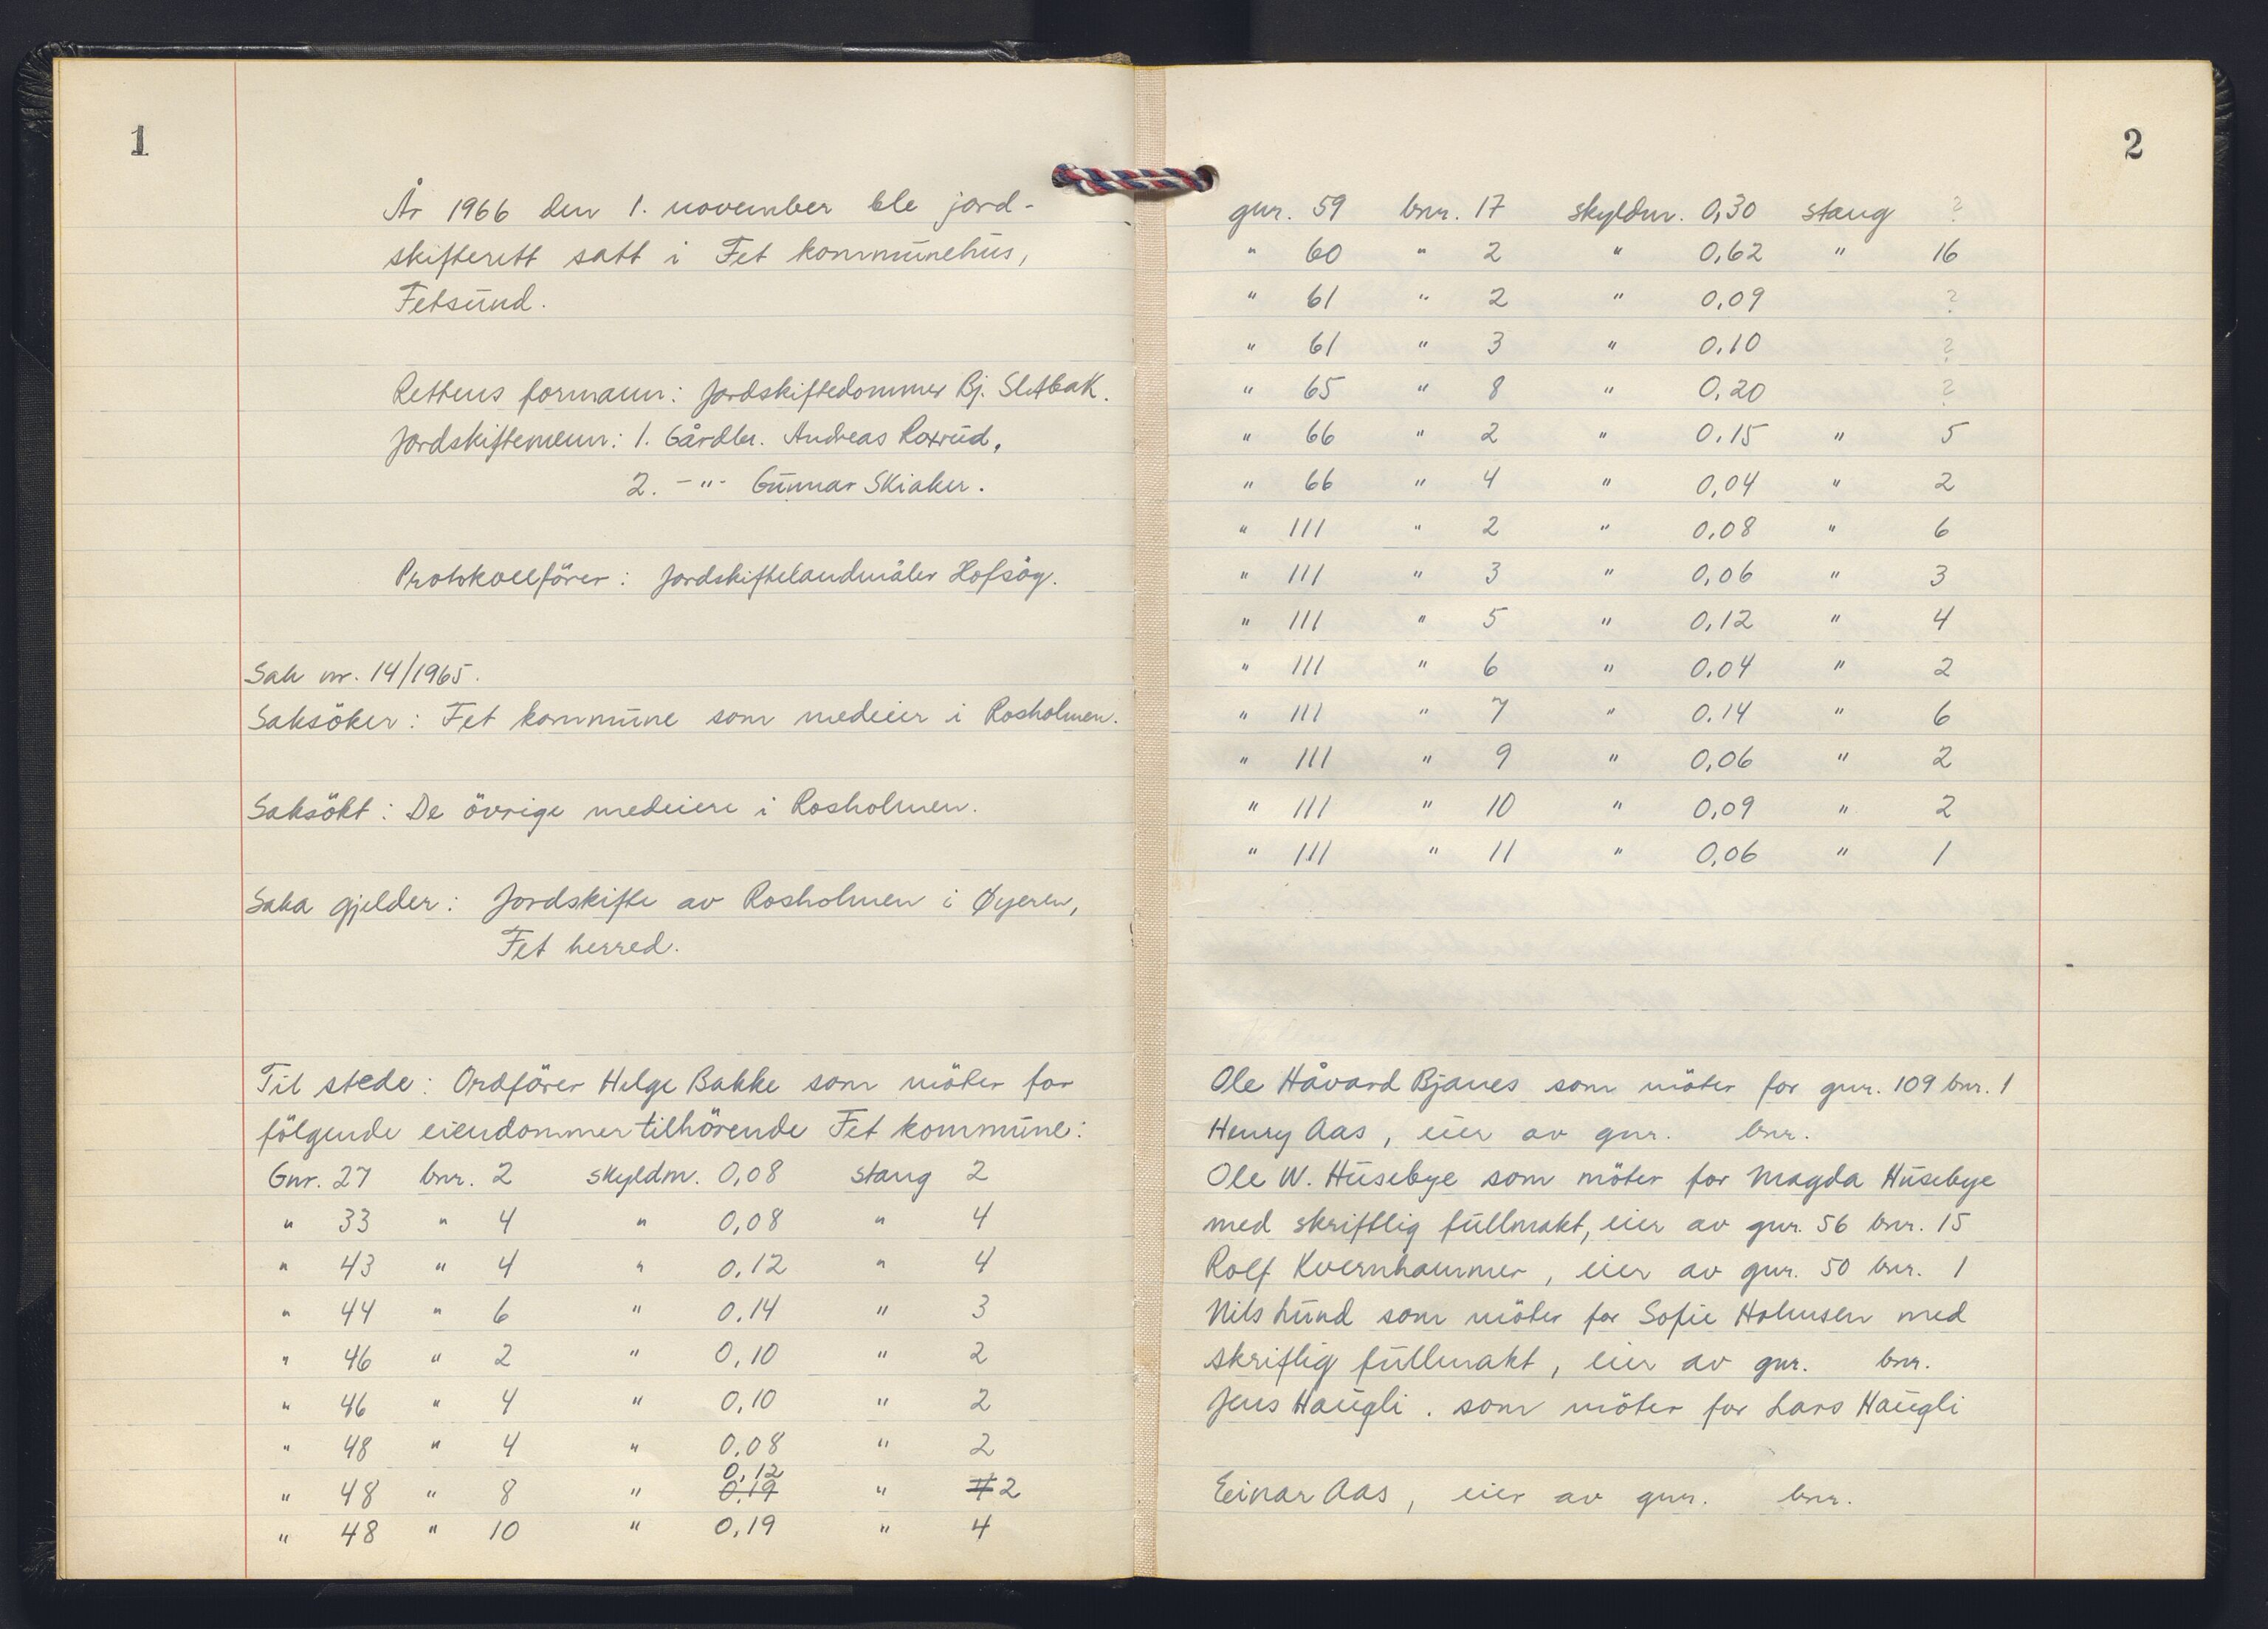 1
År 1966 den 1. november ble jord-
skifterett satt i Fet kommunehus,
Fetsund.
Rettens formann: Jordskiftedommer Bj. Sletbak.
Jordskiftemenn: 1. Gårdbr. Andreas Roxrud,
2. -"- Gunnar Skiaker.
Protokollförer: Jordskiftelandmåler Hofsöy.
Sak nr. 14/1965.
Saksöker: Fet kommune som medeier i Rosholmen.
Saksökt: De övrige medeiere i Rosholmen.
Saka gjelder: Jordskifte av Rosholmen i Øyeren,
Fet herred.
Til stede: Ordförer Helge Bakke som möter for
fölgende eiendommer tilhörende Fet kommune:
Gnr. 27 bnr. 2 skyldm. 0,08 stang 2
" 33 " 4 " 0,08 " 4
" 43 " 4 " 0,12 " 4
" 44 " 6 " 0,14 " 3
" 46 " 2 " 0,10 " 2
" 46 " 4 " 0,10 " 2
" 48 " 4 " 0,08 " 2
0,12
" 48 " 8 " 0,19 " 4 2
" 48 " 10 " 0,19 " 4
2
gnr. 59 bnr. 17 skyldm. 0,30 stang ?
" 60 " 2 " 0,62 " 16
" 61 " 2 " 0,09 ?
" 61 " 3 " 0,10 ?
" 65 " 8 " 0,20 ?
" 66 " 2 " 0,15 " 5
" 66 " 4 " 0,04 " 2
" 111 " 2 " 0,08 " 6
" 111 " 3 " 0,06 " 3
" 111 " 5 " 0,12 " 4
" 111 " 6 " 0,04 " 2
" 111 " 7 " 0,14 " 6
" 111 " 9 " 0,06 " 2
" 111 " 10 " 0,09 " 2
" 111 " 11 " 0,06 " 1
Ole Håvard Bjanes som möter for gnr. 109 bnr. 1
Henry Aas, eier av gnr. bnr.
Ole W. Husebye som möter for Magda Husebye
med skriftlig fullmakt, eier av gnr. 56 bnr. 15
Rolf Kvernhammer, eier av gnr. 50 bnr. 1
Nils Lund som möter for Sofie Holmsen med
skriftlig fullmakt, eier av gnr. bnr.
Jens Haugli. som möter for Lars Haugli
Einar Aas, eier av gnr. bnr.